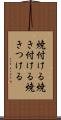 焼付ける焼
き付ける焼
きつける